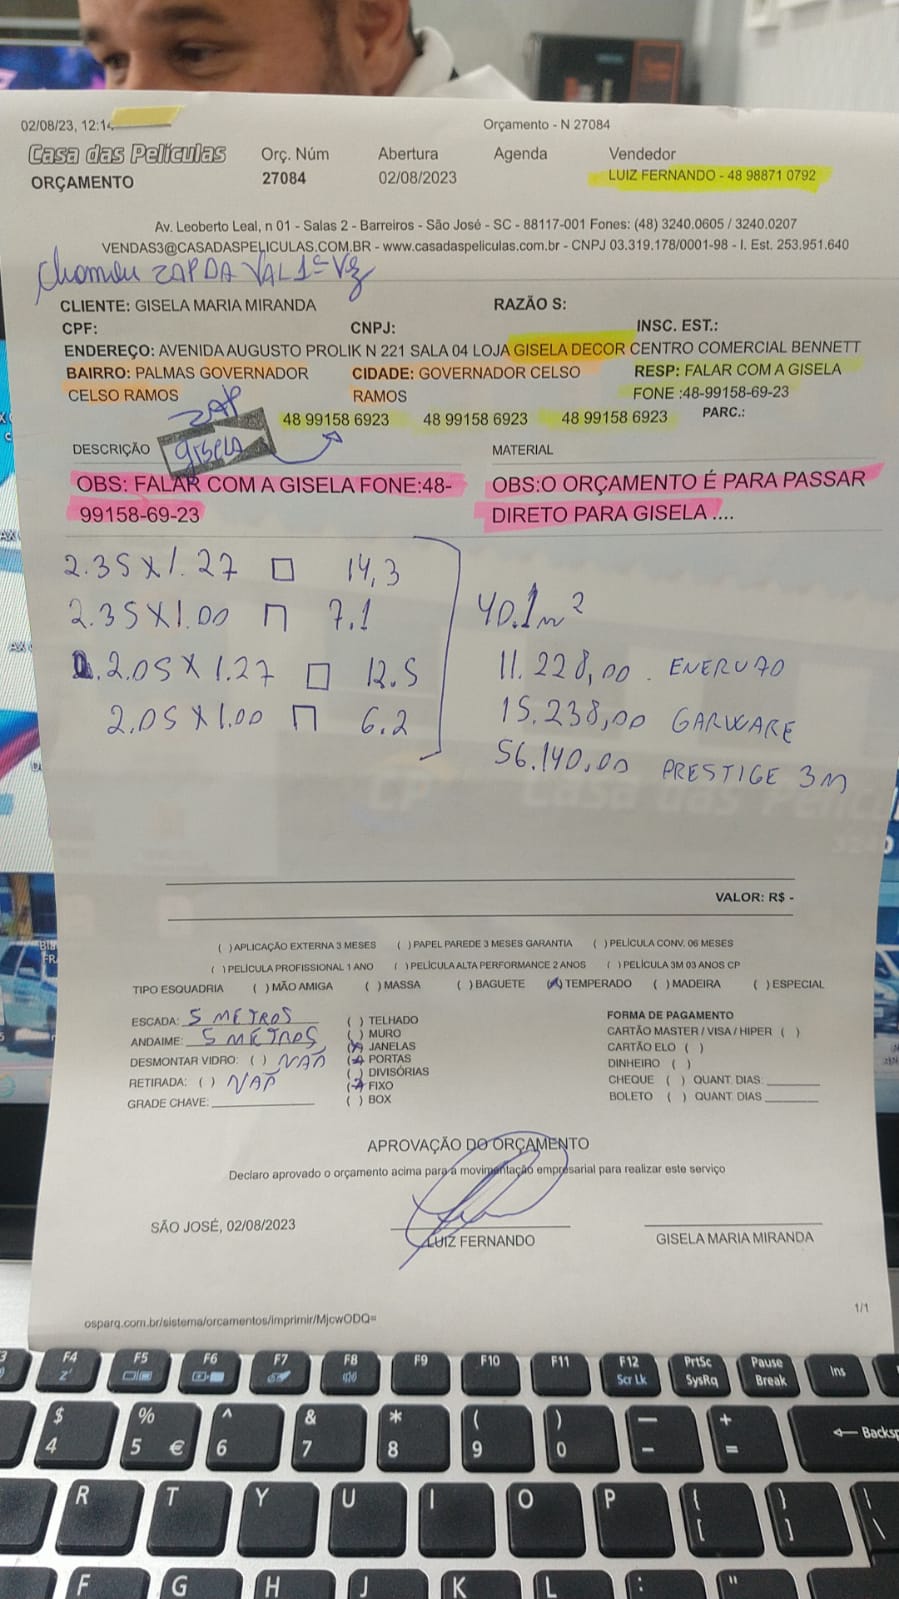 02/08/23, 12:14
Orçamento - N 27084
Casa das Películas
Orç. Núm
Abertura
Agenda
Vendedor
ORÇAMENTO
27084
02/08/2023
LUIZ FERNANDO - 48 98871 0792
Av. Leoberto Leal, n 01 - Salas 2 - Barreiros - São José - SC - 88117-001 Fones: (48) 3240.0605 / 3240.0207
VENDAS3@CASADASPELICULAS.COM.BR - www.casadaspeliculas.com.br - CNPJ 03.319.178/0001-98 - I. Est. 253.951.640
Chamou ZAP DA VAL 1ª Vez
CLIENTE: GISELA MARIA MIRANDA
RAZÃO S:
CPF:
CNPJ:
INSC. EST.:
ENDEREÇO: AVENIDA AUGUSTO PROLIK N 221 SALA 04 LOJA GISELA DECOR CENTRO COMERCIAL BENNETT
BAIRRO: PALMAS GOVERNADOR CIDADE: GOVERNADOR CELSO RESP: FALAR COM A GISELA
CELSO RAMOS RAMOS FONE :48-99158-69-23
ZAP
48 99158 6923 48 99158 6923 48 99158 6923 PARC.:
DESCRIÇÃO
GISELA
MATERIAL
OBS: FALAR COM A GISELA FONE:48-
99158-69-23
OBS:O ORÇAMENTO É PARA PASSAR
DIRETO PARA GISELA ....
2.35 X 1.27 14,3
2.35 X 1.00 7.1
2.05 X 1.27 12.5
2.05 X 1.00 6.2
40.1 m²
11.228,00. ENERU70
15.238,00 GARWARE
56.140,00 PRESTIGE 3M
VALOR: R$ -
( ) APLICAÇÃO EXTERNA 3 MESES ( ) PAPEL PAREDE 3 MESES GARANTIA ( ) PELÍCULA CONV. 06 MESES
( ) PELÍCULA PROFISSIONAL 1 ANO ( ) PELÍCULA ALTA PERFORMANCE 2 ANOS ( ) PELÍCULA 3M 03 ANOS CP
TIPO ESQUADRIA ( ) MÃO AMIGA ( ) MASSA ( ) BAGUETE (X) TEMPERADO ( ) MADEIRA ( ) ESPECIAL
ESCADA: 5 METROS
ANDAIME: 5 METROS
DESMONTAR VIDRO: ( ) NÃO
RETIRADA: ( ) NÃO
GRADE CHAVE:
( ) TELHADO
( ) MURO
(X) JANELAS
(X) PORTAS
( ) DIVISÓRIAS
(X) FIXO
( ) BOX
FORMA DE PAGAMENTO
CARTÃO MASTER / VISA / HIPER ( )
CARTÃO ELO ( )
DINHEIRO ( )
CHEQUE ( ) QUANT. DIAS:
BOLETO ( ) QUANT. DIAS
APROVAÇÃO DO ORÇAMENTO
Declaro aprovado o orçamento acima para a movimentação empresarial para realizar este serviço
SÃO JOSÉ, 02/08/2023
LUIZ FERNANDO
GISELA MARIA MIRANDA
osparq.com.br/sistema/orcamentos/imprimir/MjcwODQ=
1/1
F4 F5 F6 F7 F8 F9 F10 F11 F12 PrtSc Pause Ins
Scr Lk SysRq Break
$ % ^ & * ( ) — +
4 5 € 6 7 8 9 0 - = Backsp
R T Y U I O P { [ } ] | \
F G H J K L : "